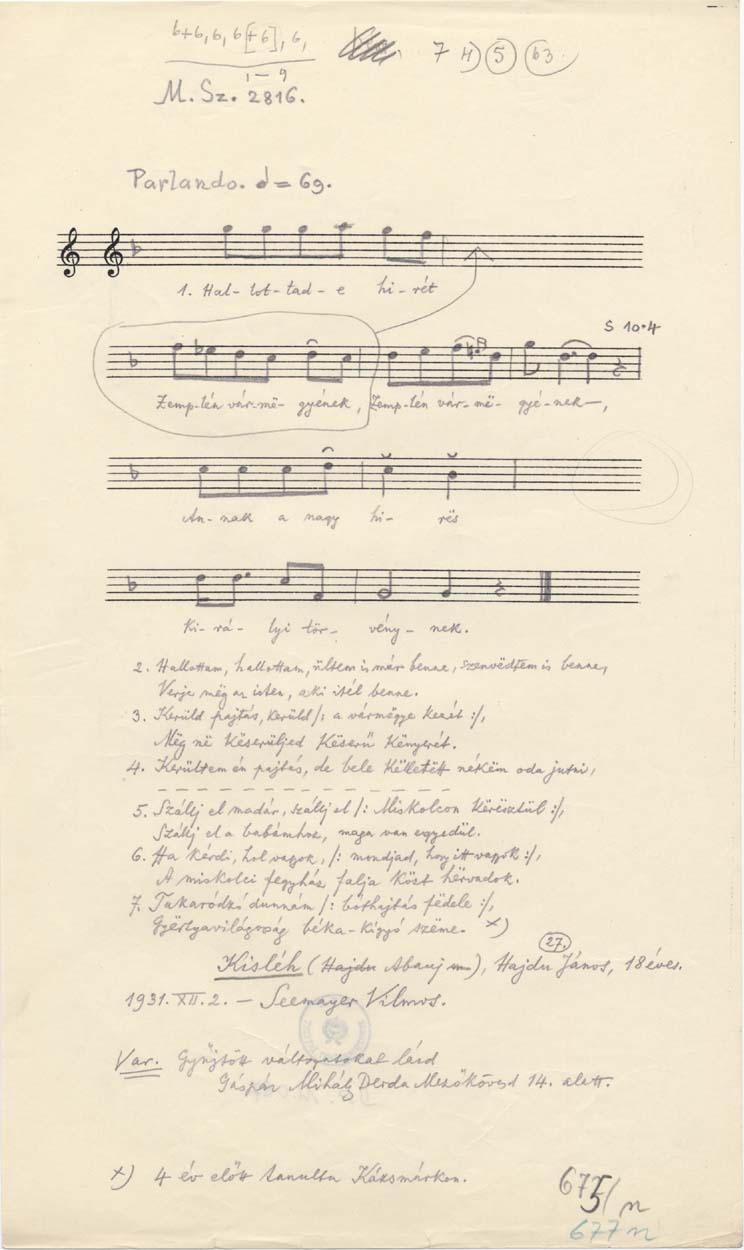 6+6, 6, 6[+6], 6,
7 4) 5 63.
1–9
M. Sz. 2816.
Parlando. = 69.
1. Hal- lot- tad- e hi- rét
S 10·4
Zemp-lén vár-më- gyének, Zemp-lén vár-më- gyé-nek—,
An- nak a nagy hi- rës
Ki- rá- lyi tör- vény- nek.
2. Hallottam, hallottam, ültem is már benne, szenvedtem is benne,
Verje még az isten, aki itél benne.
3. Kerüld pajtás, kerüld /: a vármëgye kezét :/,
Mëg në këserüljed këserü kënyerét.
4. Kerültem én pajtás, de bele këllett nékëm oda jutni,
5. Szállj el madár, szállj el /: Miskolcon kërësztül :/,
Szállj el a babámhoz, maga van egyedül.
6. Ha kérdi, hol vagyok, /: mondjad, hogy itt vagyok :/,
A miskolci fegyház falja közt hërvadok.
7. Takaródzó dunnám /: bóthajtás fëdele :/,
Gyërtyavilágosság béka-kígyó szëme. x)
27.
Kisléh (Hajdu Abauj m.), Hajdu János, 18 éves.
1931. XII. 2. – Seemayer Vilmos.
Var. Gyűjtött változatokat lásd
Gáspár Mihály Derda Mezőkövesd 14. alatt.
x) 4 év előtt tanulta Kázsmárkon.
675/n
677 n